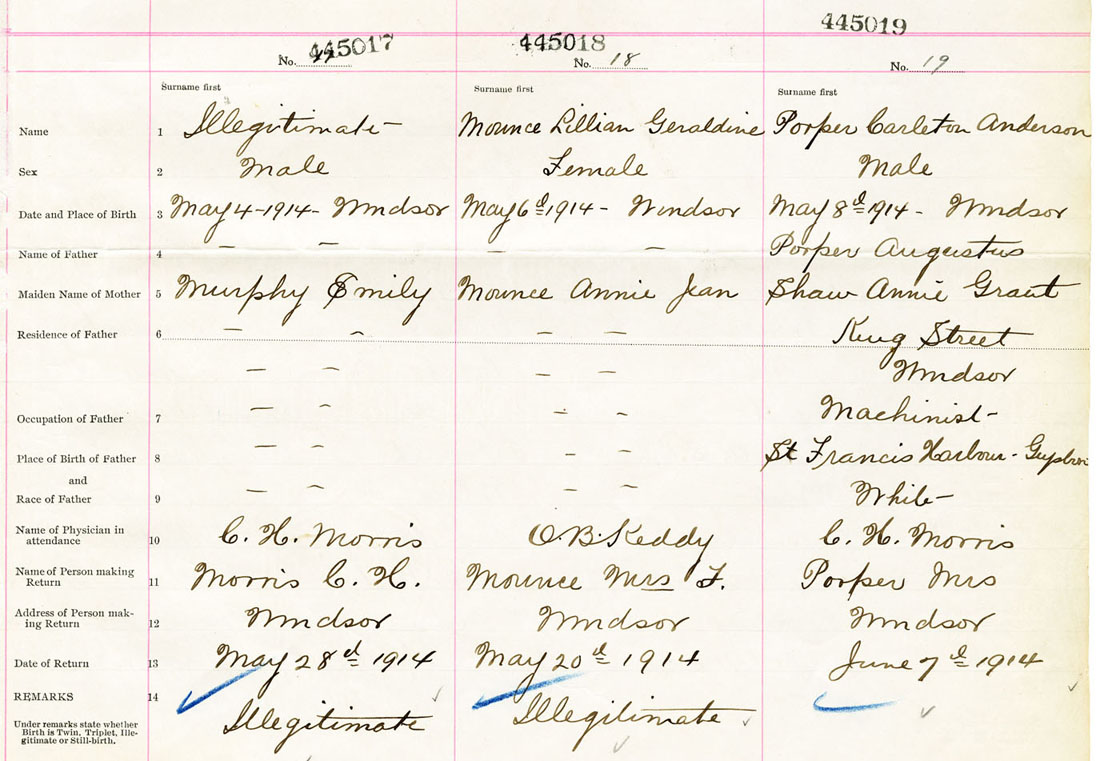 445017 445018 445019
No. No. 18 No. 19
Surname first Surname first Surname first
Name 1 Illegitimate Mounce Lillian Geraldine Porper Carleton Anderson
Sex 2 Male Female Male
Date and Place of Birth 3 May 4-1914- Windsor May 6th 1914- Windsor May 8th 1914- Windsor
Name of Father 4 — — — — Porper Augustus
Maiden Name of Mother 5 Murphy Emily Mounce Annie Jean Shaw Annie Grant
Residence of Father 6 — — — — King Street
— — — — Windsor
Occupation of Father 7 — — — — Machinist-
Place of Birth of Father 8 — — — — St Francis Harbour-
and
Race of Father 9 — — — — White
Name of Physician in
attendance 10 C. H. Morris O.B. Keddy C. H. Morris
Name of Person making
Return 11 Morris C. H. Mounce Mrs F. Porper Mrs
Address of Person mak-
ing Return 12 Windsor Windsor Windsor
Date of Return 13 May 28th 1914 May 20th 1914 June 7th 1914
REMARKS 14
Under remarks state whether
Birth is Twin, Triplet, Ille-
gitimate or Still-birth.
Illegitimate Illegitimate